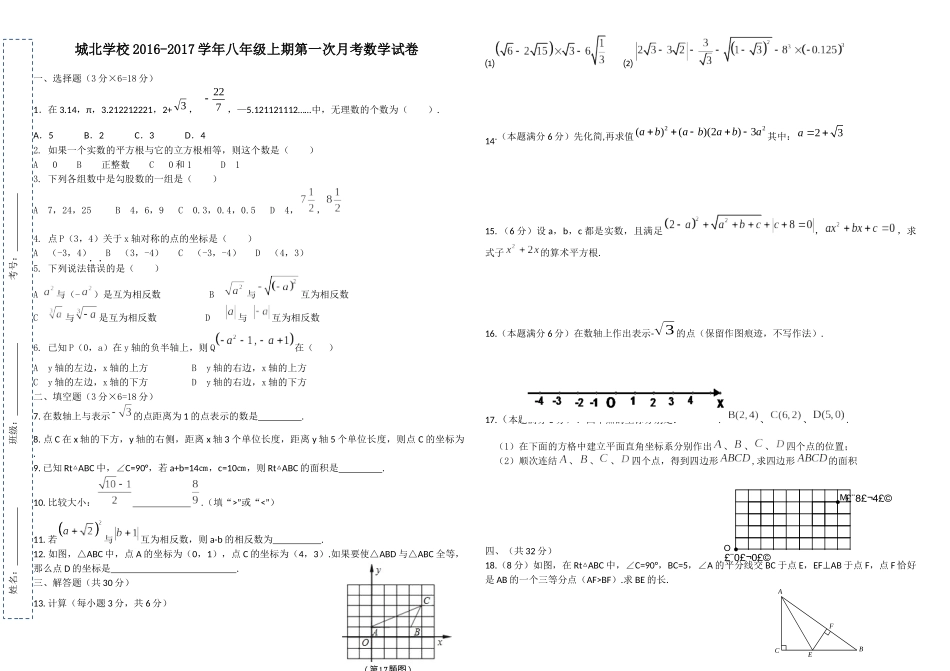 考号：
班级：
姓名：
城北学校 2016-2017 学年八年级上期第一次月考数学试卷
一、选择题（3 分×6=18 分）
1．在 3.14，π，3.212212221，2+√3，-22/7，—5.121121112……中，无理数的个数为（　　）.
A．5　　B．2　　C．3　　D．4
2. 如果一个实数的平方根与它的立方根相等，则这个数是（　　）
A　0　　B　正整数　　C　0 和 1　　D　1
3. 下列各组数中是勾股数的一组是（　　）
A　7，24，25　　B　4，6，9　　C　0.3，0.4，0.5　　D　4，7 1/2，8 1/2
4. 点 P（3，4）关于 x 轴对称的点的坐标是（　　）
A　（-3，4）　B　（3，-4）　C　（-3，-4）　D　（4，3）
5. 下列说法错误的是（　　）
A　a²与（-a²）是互为相反数　　B　√(a²)与-√((-a)²)互为相反数
C　∛a与∛(-a)是互为相反数　　D　|a|与|-a|互为相反数
6. 已知 P（0，a）在 y 轴的负半轴上，则 Q(-a²-1,-a+1)在（　　）
A　y 轴的左边，x 轴的上方　　B　y 轴的右边，x 轴的上方
C　y 轴的左边，x 轴的下方　　D　y 轴的右边，x 轴的下方
二、填空题（3 分×6=18 分）
7. 在数轴上与表示-√3的点距离为 1 的点表示的数是_________.
8. 点 C 在 x 轴的下方，y 轴的右侧，距离 x 轴 3 个单位长度，距离 y 轴 5 个单位长度，则点 C 的坐标为
9. 已知 Rt△ABC 中，∠C=90°，若 a+b=14㎝，c=10㎝，则 Rt△ABC 的面积是_________.
10. 比较大小：(√10-1)/2 ____________ 8/9．（填“>”或“<”）
11. 若(a+√2)²与|b+1|互为相反数，则 a-b 的相反数为__________.
12. 如图，△ABC 中，点 A 的坐标为（0，1），点 C 的坐标为（4，3）.如果要使△ABD 与△ABC 全等，
那么点 D 的坐标是__________________________.
三、解答题（共 30 分）
13. 计算（每小题 3 分，共 6 分）
y
C
A
B
O
x
（第17题图）
(1) (√6-2√15)×√3-6√(1/3)　　(2) |2√3-3√2|-3/√3-√((1-√3)²)-8³×(-0.125)³
14-（本题满分 6 分）先化简,再求值(a+b)²+(a-b)(2a+b)-3a²其中：a=2+√3
15.（6 分）设 a，b，c 都是实数，且满足(2-a)²+√(a²+b+c)+|c+8|=0，ax²+bx+c=0，求
式子x²+2x的算术平方根.
16.（本题满分 6 分）在数轴上作出表示-√3的点（保留作图痕迹，不写作法）.
-4 -3 -2 -1 O 1 2 3 4 X
B(2,4)、C(6,2)、D(5,0).
（1）在下面的方格中建立平面直角坐标系分别作出 A、B、C、D 四个点的位置;
（2）顺次连结 A、B、C、D 四个点，得到四边形 ABCD,求四边形 ABCD的面积
M£¨8£¬4£©
O
£¨0£¬0£©
四、（共 32 分）
18.（8 分）如图，在 Rt△ABC 中，∠C=90°，BC=5，∠A 的平分线交 BC 于点 E，EF⊥AB 于点 F，点 F 恰好
是 AB 的一个三等分点（AF>BF）.求 BE 的长.
A
F
C
E
B